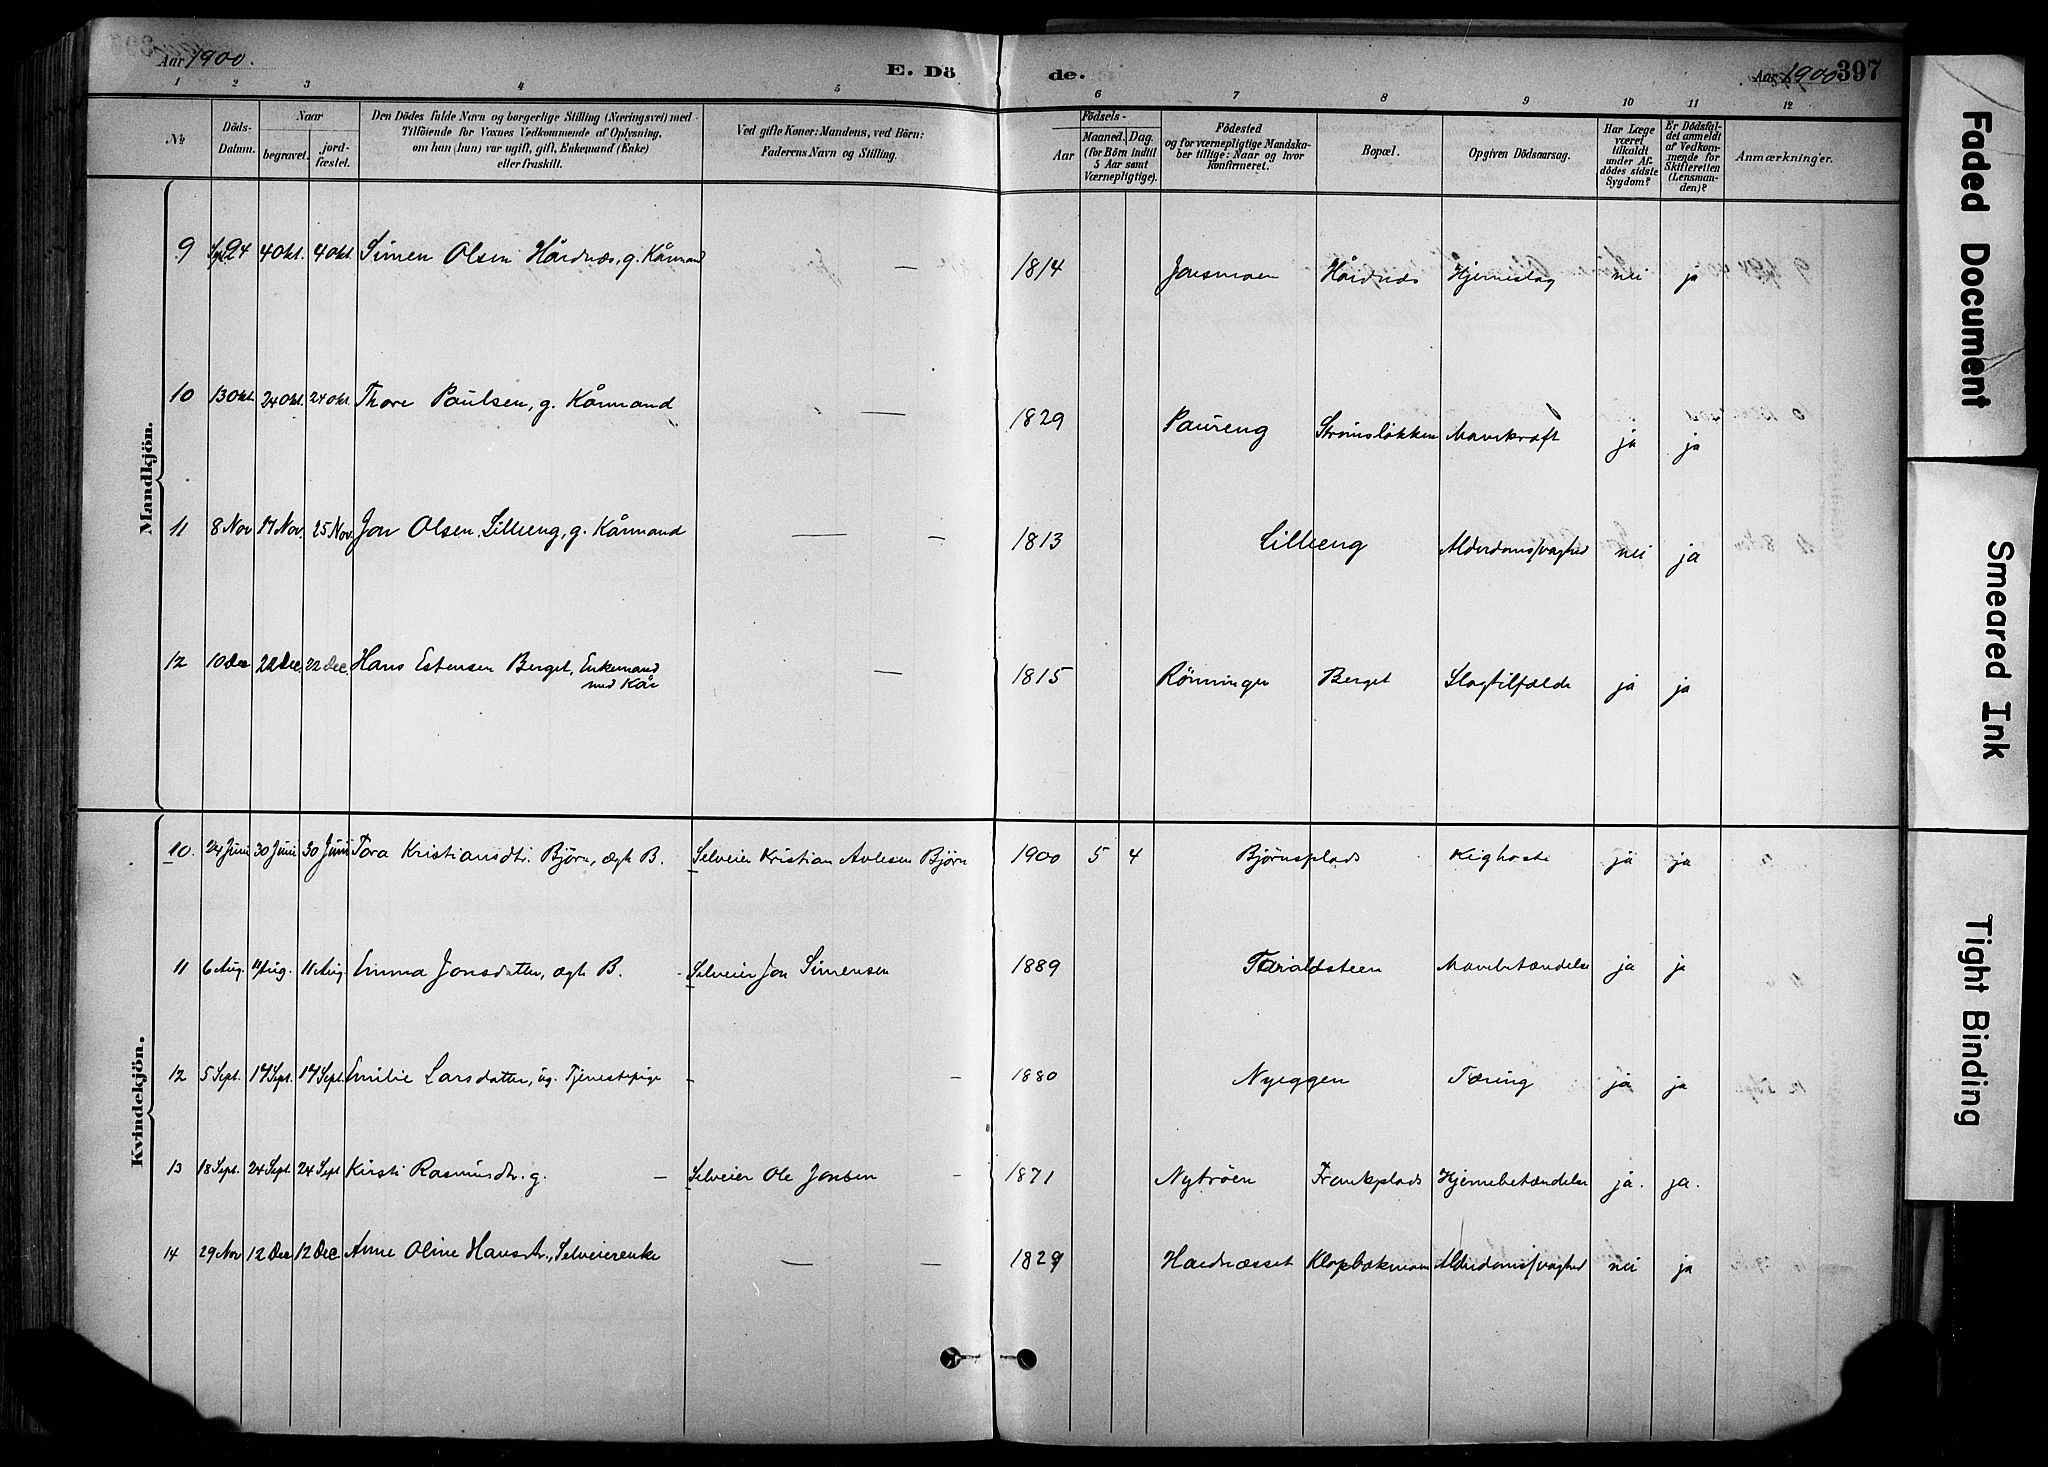 Aar 1900.
E. Dö
de.
Aar 1900
397
1 2 3 4 5 6 7 8 9 10 11 12
№
Döds-Datum.
Naar
begravet.
jord-fæstet.
Den Dödes fulde Navn og borgerlige Stilling (Næringsvei) med
Tilföiende for Voxnes Vedkommende af Oplysning,
om han (hun) var ugift, gift, Enkemand (Enke)
eller fraskilt.
Ved gifte Koner: Mandens, ved Börn:
Faderens Navn og Stilling.
Födsels-
Aar
Maaned. Dag.
(for Börn indtil
5 Aar samt
Værnepligtige).
Födested
og for værnepligtige Mandska-
ber tillige: Naar og hvor
konfirmeret.
Bopæl.
Opgiven Dödsaarsag.
Har Læge
været
tilkaldt
under Af-
dödes sidste
Sygdom?
Er Dödsfal-
det anmeldt
af Vedkom-
mende for
Skifteretten
(Lensman-
den)?
Anmærkninger.
Mandkjön.
9 Spt 24 4 Okt. 4 Okt. Simen Olsen Hårdnæs, g. Kårmand — 1814 Jonsmoen Hårdnæs Hjerneslag nei ja
10 13 Okt. 24 Okt. 24 Okt. Thore Paulsen, g. Kårmand — 1829 Paureng Strømsløkken Mavekræft ja ja
11 8 Nov 17 Nov. 25 Nov. Jon Olsen Lilleeng, g. Kårmand — - 1813 Lilleeng Alderdomssvaghed nei ja
12 10 Dec 22 Dec. 22 Dec. Hans Estensen Berget, Enkemand
med Kår — 1815 Rönningen Berget Slagtilfælde ja ja
Kvindekjön.
10. 24 Juni 30 Juni 30 Juni Tora Kristiansdtr. Björn, ægte B. Selveier Kristian Avlesen Björn 1900 5 4 Björnsplads Kighoste ja ja
11 6 Aug. 11 Aug. 11 Aug. Emma Jonsdatter, ægte B. - Selveier Jon Simensen 1889 Taraldsteen Mavebetændelse ja ja
12 5 Sept. 17 Sept. 17 Sept. Emilie Larsdatter, ug. Tjenestepige - - 1880 Nyeggen Tæring ja ja
13 18 Sept. 24 Sept. 24 Sept Kirsti Rasmusdtr. g. - Selveier Ole Jonsen - 1871 Nytröen Frankplads Hjernebetændelse ja. ja.
14 29 Nov 12 Dec 12 Dec. Anne Oline Hansdtr., Selveierenke — - 1829 Haardnæsset Klopbakmoen Alderdomssvaghed nei ja
Faded Document
Smeared Ink
Tight Binding